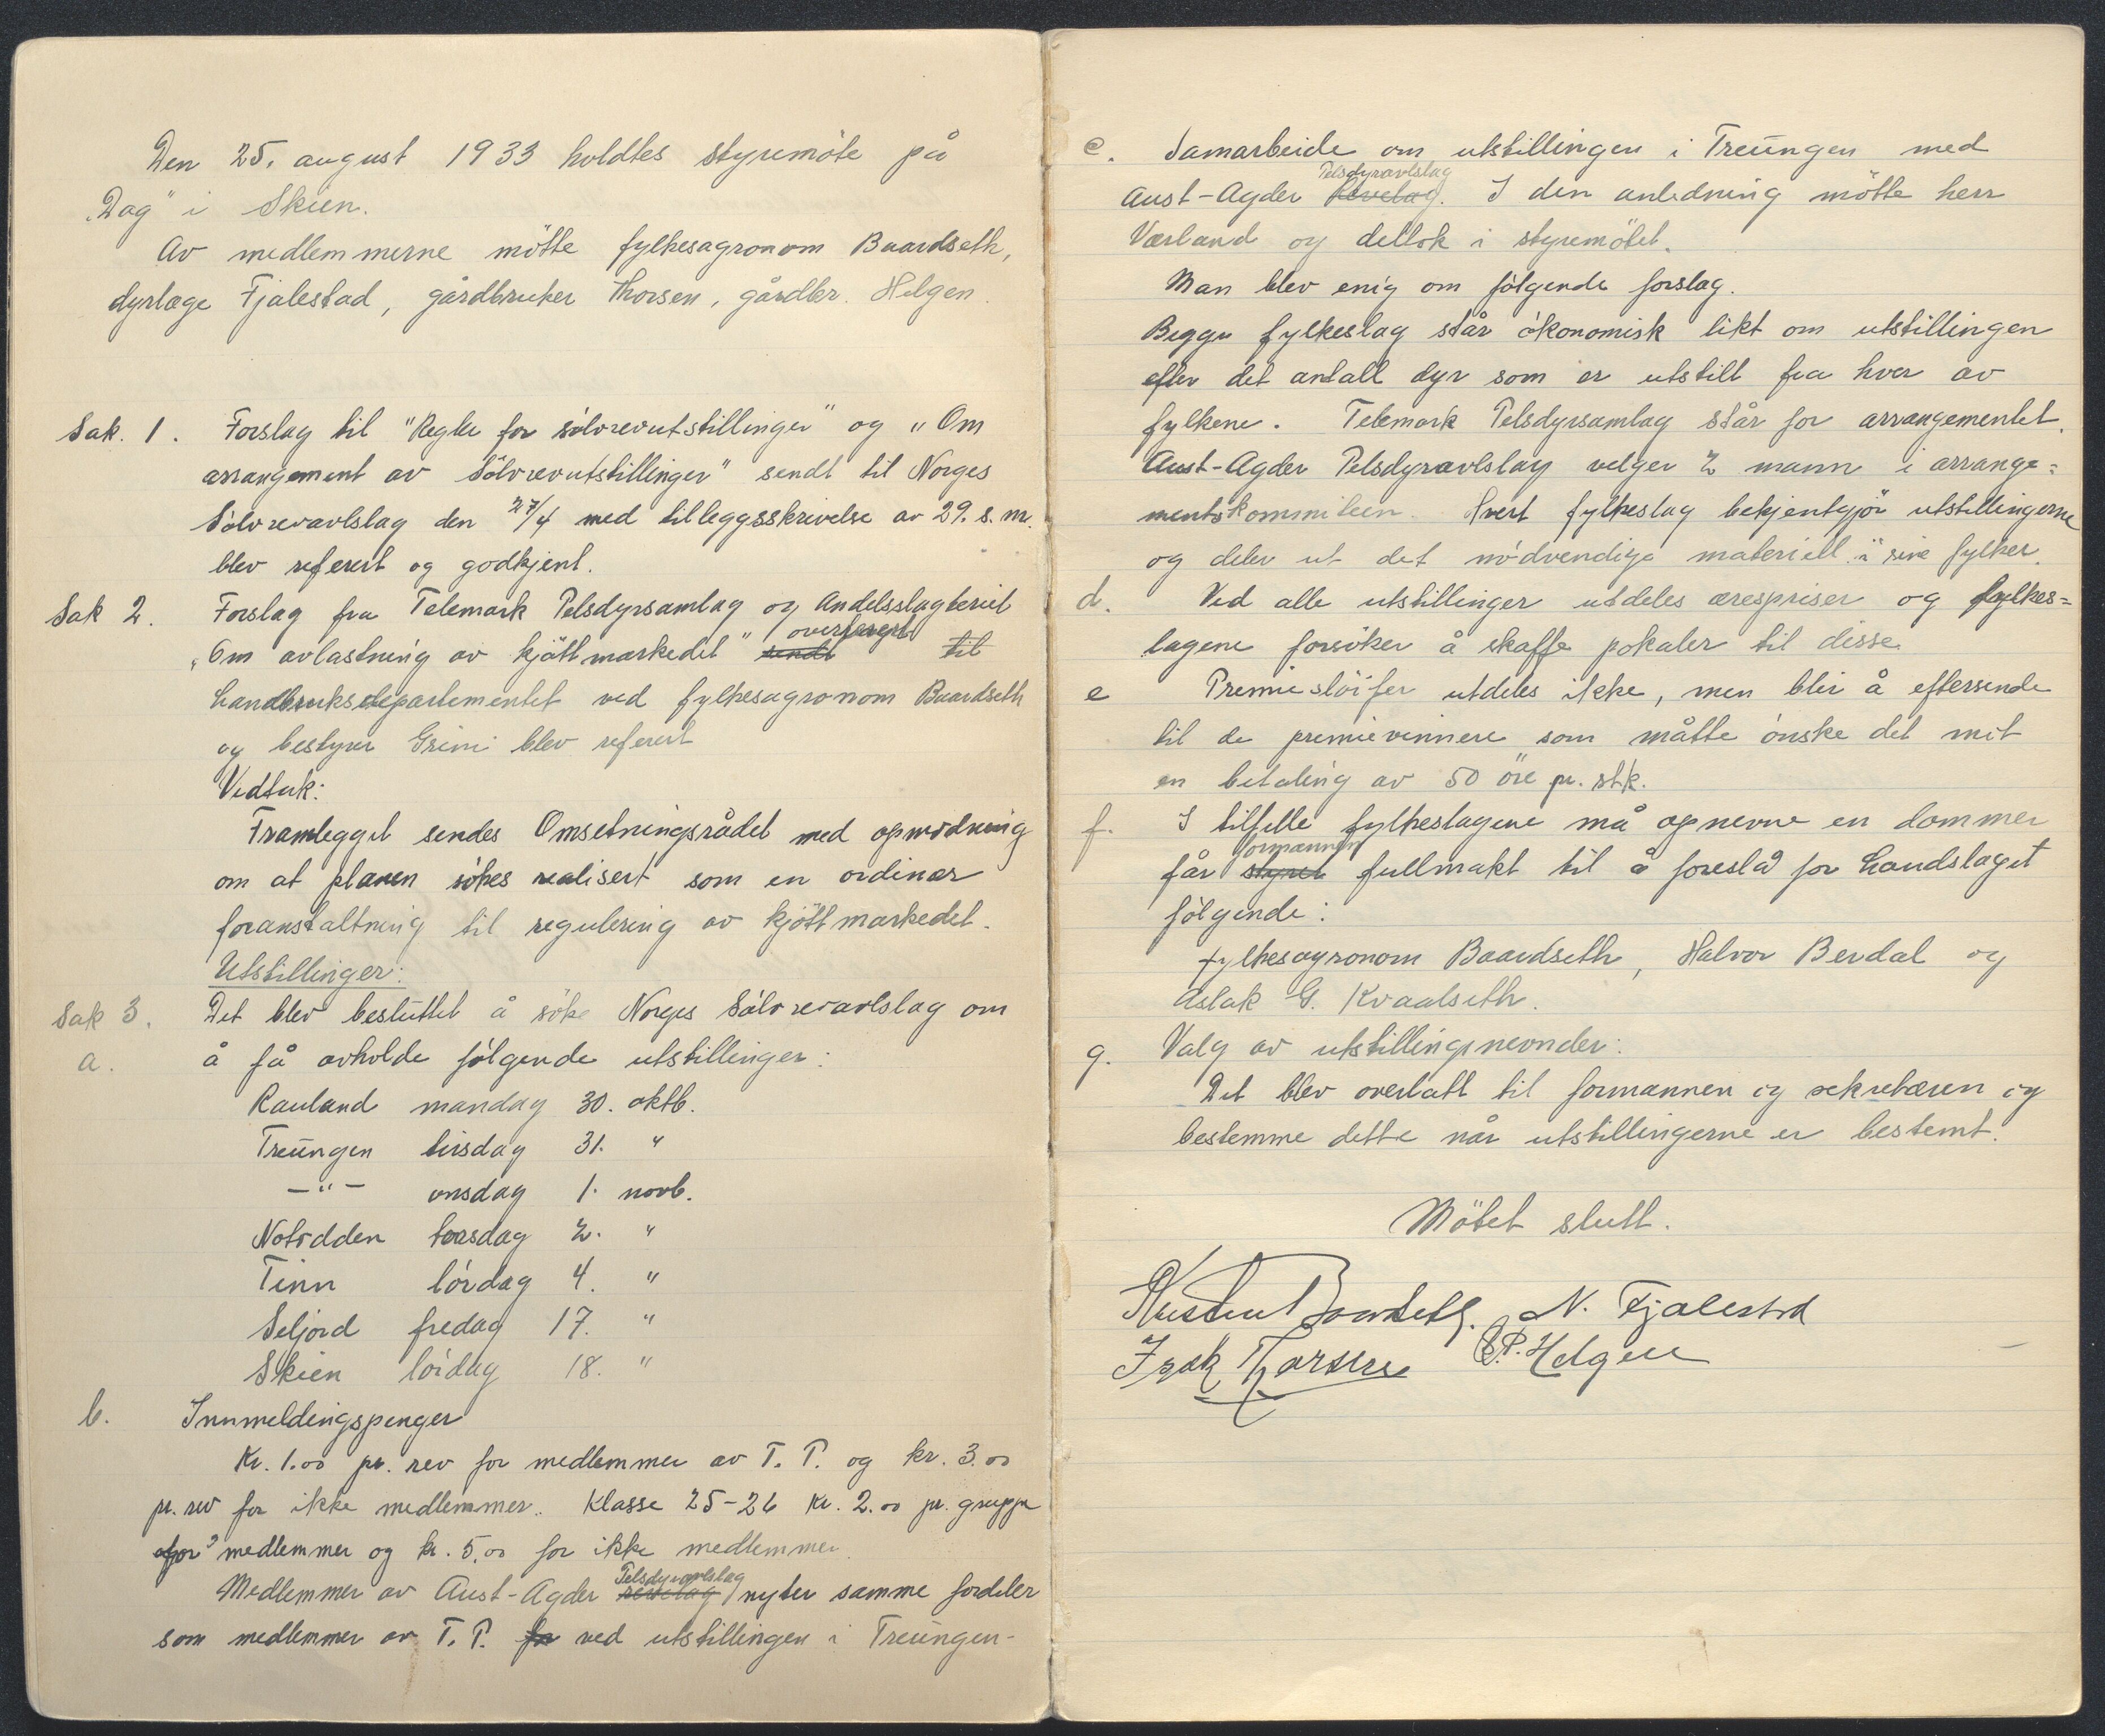 Den 25. august 1933 holdtes styremöte på
"Dag" i Skien.
Av medlemmerne mötte fylkesagronom Baardseth,
dyrlæge Fjalestad, gårdbruker Thorsen, gårdbr. Helgen.
Sak. 1. Forslag til "Regler for sölvrevutstillinger" og "Om
arrangement av Sölvrevutstillinger" sendt til Norges
Sölvrevavlslag den 27/4 med tilleggsskrivelse av 29. s. m.
blev referert og godkjent.
Sak 2. Forslag fra Telemark Pelsdyrsamlag og Andelsslagteriet
"Om avlastning av kjöttmarkedet" sendt til
Landbruksdepartementet ved fylkesagronom Baardseth
og bestyrer Grini blev referert
Vedtak:
Framlegget sendes Omsetningsrådet med opmodning
om at planen sökes realisert som en ordinær
foranstaltning til regulering av kjöttmarkedet.
Utstillinger:
Sak 3. Det blev besluttet å söke Norges Sölvrevavlslag om
a. å få avholde fölgende utstillinger:
Rauland mandag 30. oktb.
Treungen tirsdag 31. "
-"- onsdag 1. novb.
Notodden torsdag 2. "
Tinn lördag 4. "
Seljord fredag 17. "
Skien lördag 18. "
b. Innmeldingspenger
Kr. 1.00 pr. rev for medlemmer av T. P. og kr. 3.00
pr. rev for ikke medlemmer. Klasse 25-26 Kr. 2.00 pr. gruppe
for medlemmer og kr. 5.00 for ikke medlemmer.
Pelsdyravlslag
Medlemmer av Aust-Agder revelag nyter samme fordeler
som medlemmer av T. P. for ved utstillingen i Treungen-
c. Samarbeide om utstillingen i Treungen med
Pelsdyravlslag
Aust-Agder Revelag. I den anledning mötte herr
Værland og deltok i styremötet.
Man blev enig om fölgende forslag.
Begge fylkeslag står ökonomisk likt om utstillingen
efter det antall dyr som er utstilt fra hver av
fylkene. Telemark Pelsdyrsamlag står for arrangementet.
Aust-Agder Pelsdyravlslag velger 2 mann i arrange=
mentskommiteen. Hvert fylkeslag bekjentgjör utstillingerne
og deler ut det nödvendige materiell i sine fylker.
d. Ved alle utstillinger utdeles ærespriser og fylkes=
lagene forsöker å skaffe pokaler til disse.
e Premieslöifer utdeles ikke, men blir å eftersende
til de premievinnere som måtte önske det mot
en betaling av 50 öre pr. stk.
f. I tilfelle fylkeslagene må opnevne en dommer
formannen
får styret fullmakt til å foreslå for Landslaget
fölgende:
fylkesagronom Baardseth, Halvor Berdal og
Aslak G. Kvaalseth.
g. Valg av utstillingsnevnder:
Det blev overlatt til formannen og sekretæren og
bestemme dette når utstillingerne er bestemt.
Mötet slutt.
Baardseth. N. Fjalestad
Isak Thorsen P. Helgen